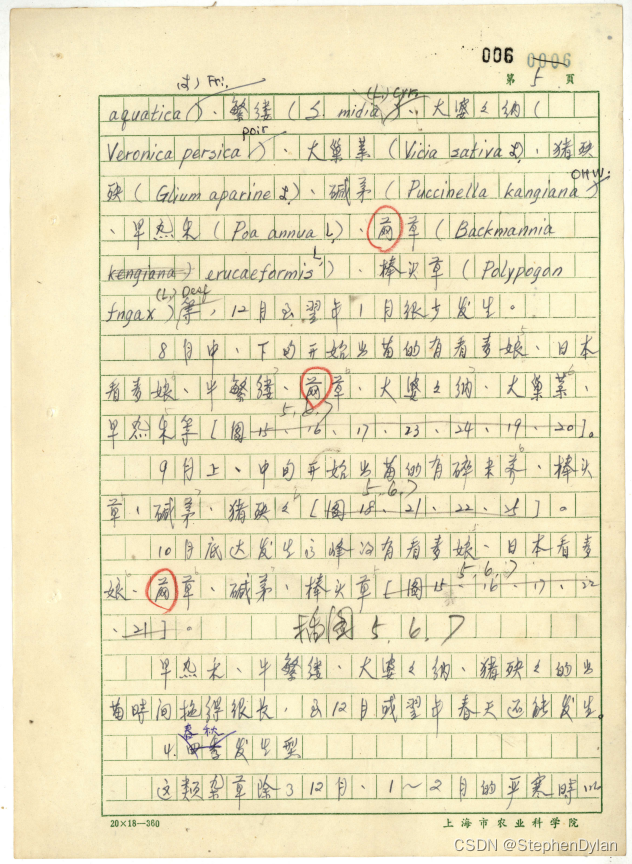 006 0006
第 5 页
(L) Fri. (L.) Cyr.
aquatica )、繁缕 ( S. midia )、大婆々纳 (
poir
Veronica persica )、大巢菜 ( Vicia sativa L)、猪殃
OHW.
殃 ( Glium aparine L)、碱茅 ( Puccinella kangiana )
、早熟禾 ( Poa annua L)、茵草 ( Backmannia
kengiana) erucaeformis L )、棒头草 ( Polypogon
(L) Desf
fngax ) 等，12月至翌年1月很少发生。
8月中、下旬开始出苗的有看麦娘、日本
看麦娘、牛繁缕、茵草、大婆々纳、大巢菜、
5.6.7
早熟禾等 [图15、16、17、23、24、19、20]。
9月上、中旬开始出苗的有碎米荠、棒头
5.6.7
草、碱茅、猪殃々 [图18、21、22、25]。
10月底达发生高峰的有看麦娘、日本看麦
5.6.7
娘、茵草、碱茅、棒头草 [图15、16、17、22
、21]。 插图 5.6.7
早熟禾、牛繁缕、大婆々纳、猪殃々的出
苗時间拖得很长，至12月或翌年春天还能发生。
春秋
4. 四季发生型
这类杂草除了12月、1～2月的严寒時以
20×18—360
上海市农业科学院
CSDN @StephenDylan